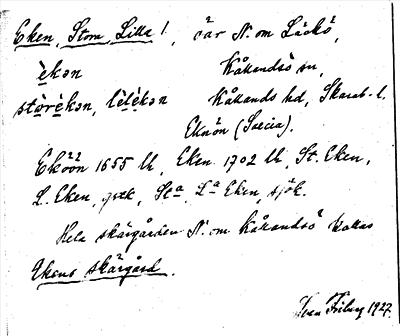 Eken, Stora, Lilla l., öar N. om Läckö,
èkən Kållandsö sn,
stɷrèkən, lìlèkən Kållands hd, Skarab. l.
Eköön (Suecia).
Eköön 1655 Lk, Eken 1702 Lk, St. Eken,
L. Eken, gsk, Sta, La Eken, sjök.
Hela skärgården N. om Kållandsö kallas
Ekens skärgård.
Ivar Friberg 1927.